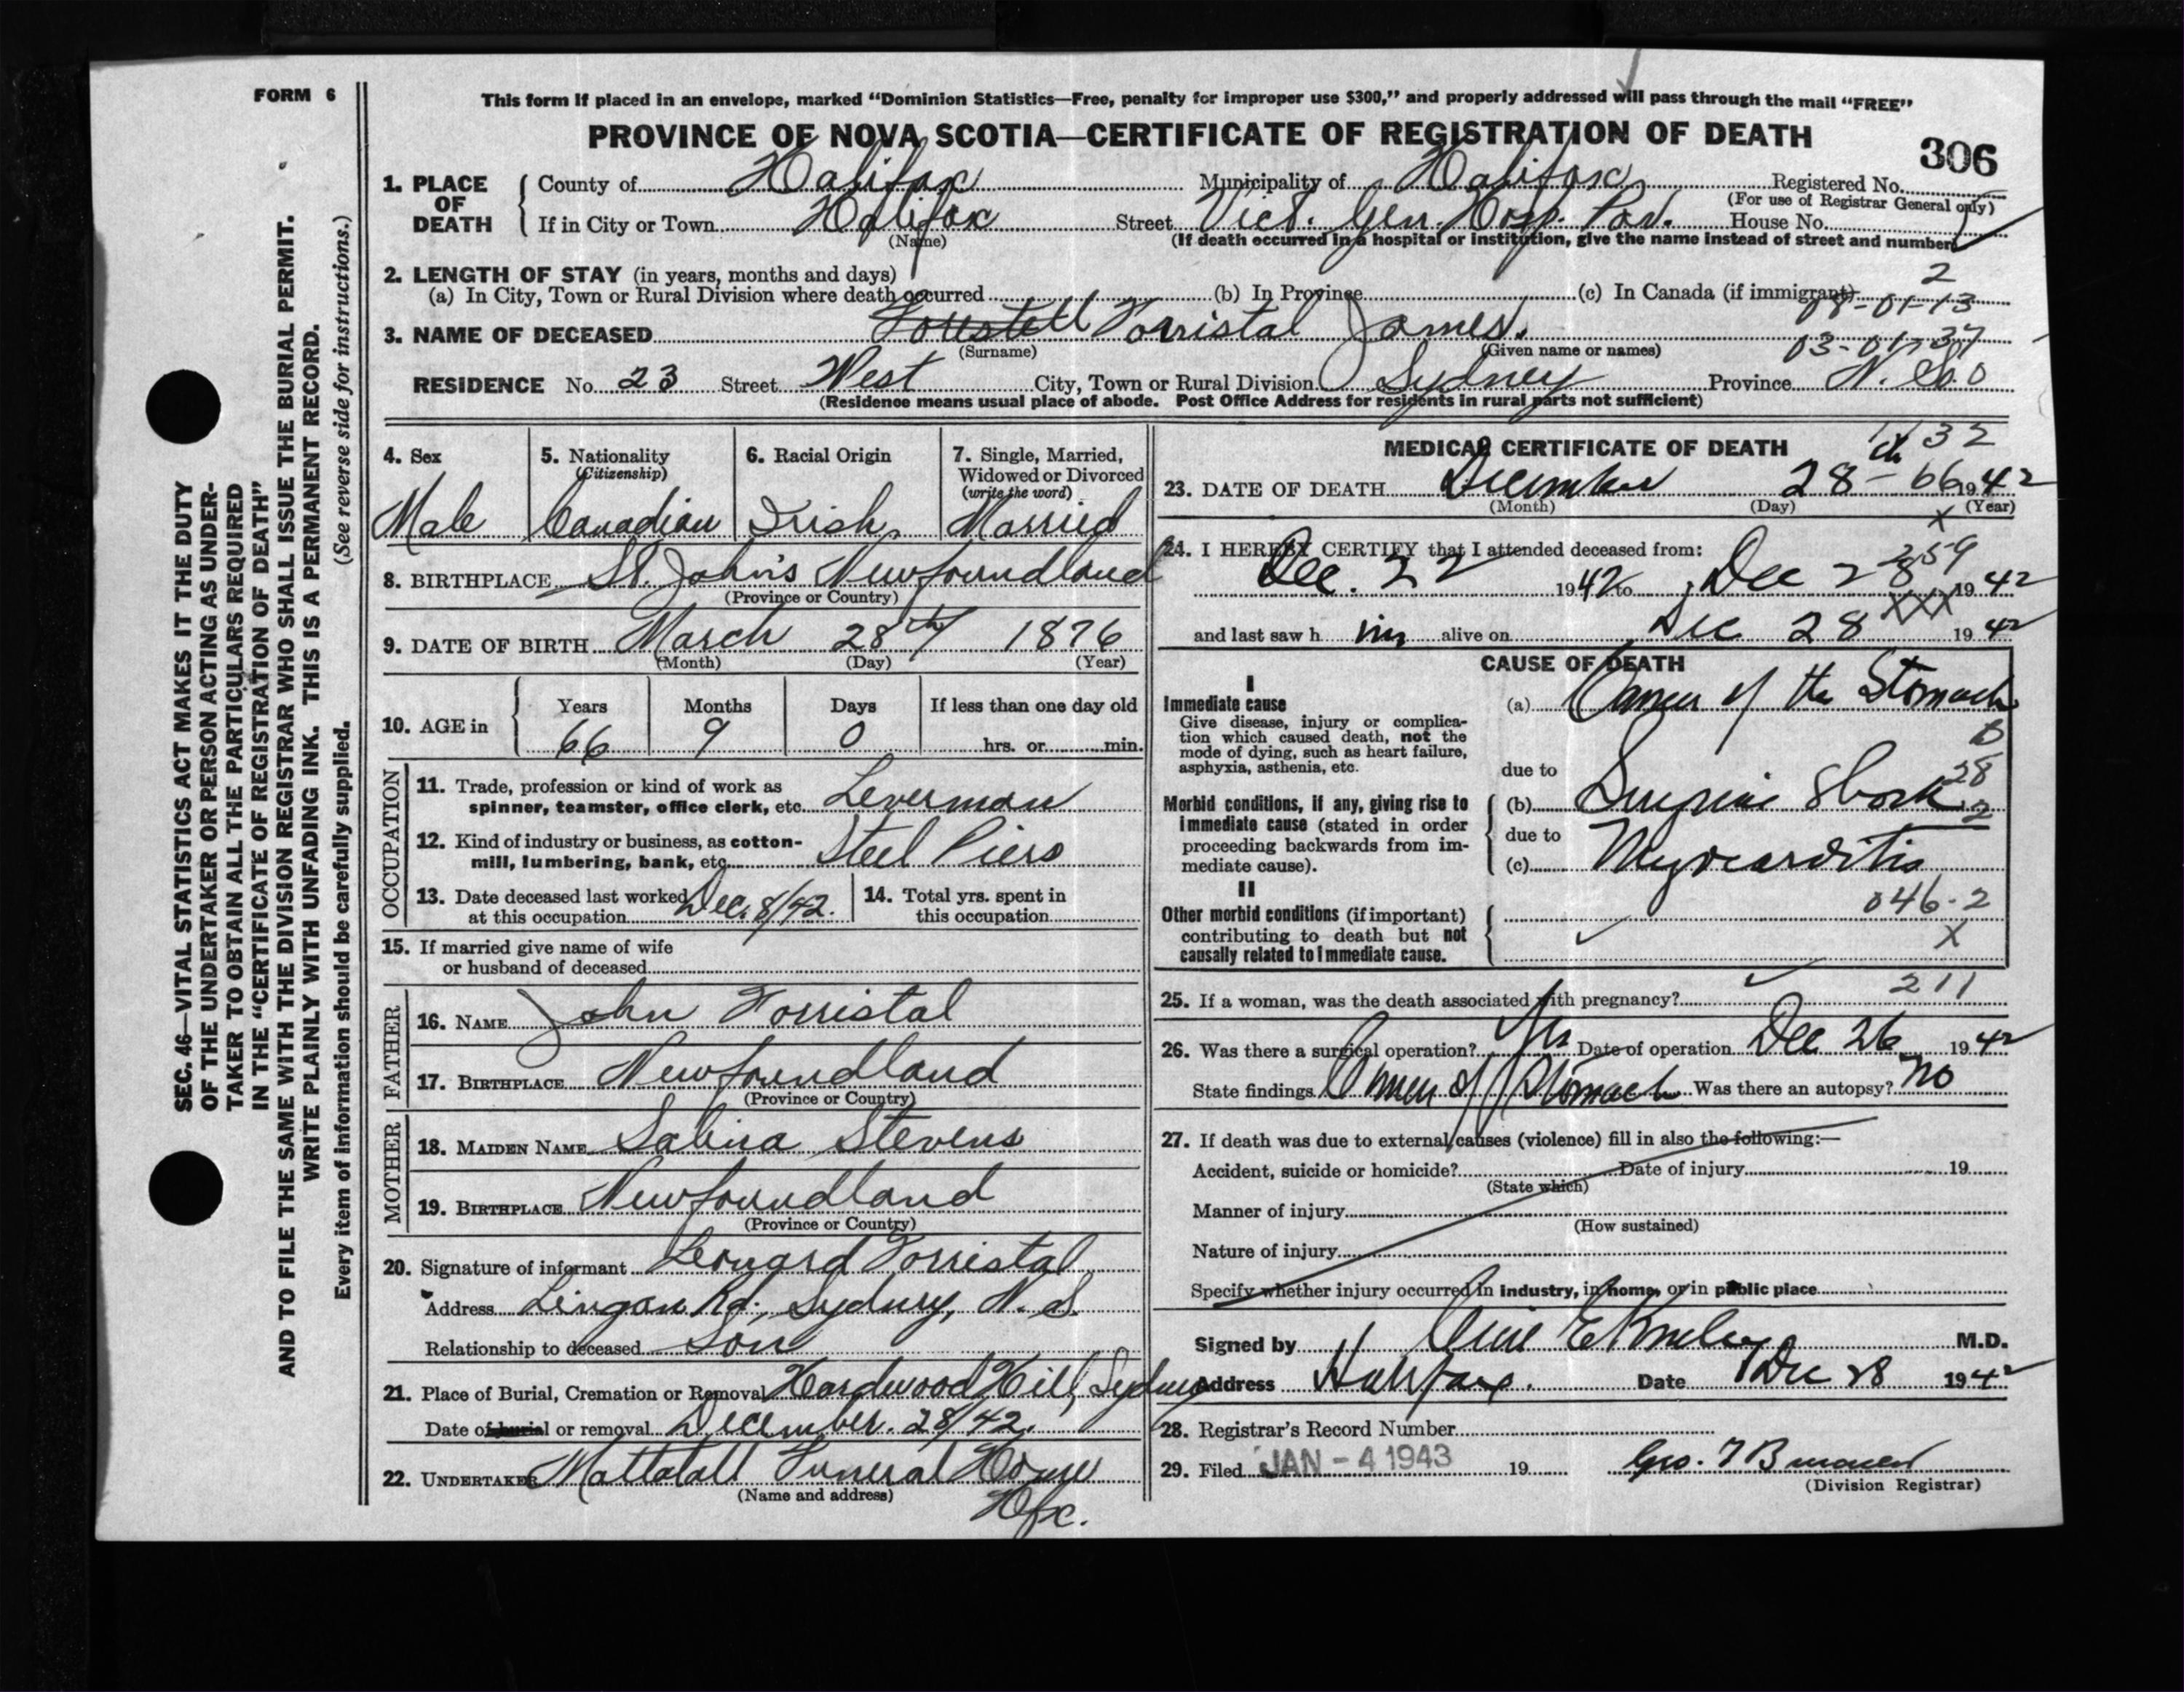 FORM 6
This form if placed in an envelope, marked “Dominion Statistics—Free, penalty for improper use $300,” and properly addressed will pass through the mail “FREE”
PROVINCE OF NOVA SCOTIA—CERTIFICATE OF REGISTRATION OF DEATH
306
1. PLACE OF DEATH
County of Halifax Municipality of Halifax Registered No.
(For use of Registrar General only)
If in City or Town Halifax Street Vict. Gen. Hosp. Pav. House No.
(Name) (If death occurred in a hospital or institution, give the name instead of street and number)
2. LENGTH OF STAY (in years, months and days)
2
(a) In City, Town or Rural Division where death occurred (b) In Province (c) In Canada (if immigrant)
08-01-13
3. NAME OF DECEASED Forestell Forristal James.
(Surname) (Given name or names)
03-01-37
RESIDENCE No. 23 Street West City, Town or Rural Division Sydney Province N. S.
(Residence means usual place of abode. Post Office Address for residents in rural parts not sufficient)
4. Sex
Male
5. Nationality
(Citizenship)
Canadian
6. Racial Origin
Irish
7. Single, Married, Widowed or Divorced
(write the word)
Married
8. BIRTHPLACE St. John's Newfoundland
(Province or Country)
9. DATE OF BIRTH March 28th 1876
(Month) (Day) (Year)
10. AGE in
Years Months Days If less than one day old
66 9 0 hrs. or min.
OCCUPATION
11. Trade, profession or kind of work as
spinner, teamster, office clerk, etc. Leverman
12. Kind of industry or business, as cotton-
mill, lumbering, bank, etc. Steel Piers
13. Date deceased last worked
at this occupation Dec. 8/42.
14. Total yrs. spent in
this occupation
15. If married give name of wife
or husband of deceased
FATHER
16. NAME John Forristal
17. BIRTHPLACE Newfoundland
(Province or Country)
MOTHER
18. MAIDEN NAME Salina Stevens
19. BIRTHPLACE Newfoundland
(Province or Country)
20. Signature of informant Leonard Forristal
Address Lingan Rd., Sydney, N. S.
Relationship to deceased Son
21. Place of Burial, Cremation or Removal Hardwood Hill, Sydney
Date of burial or removal December. 28/42.
22. UNDERTAKER Mattatall Funeral Home
(Name and address)
Hfx.
MEDICAL CERTIFICATE OF DEATH
32
23. DATE OF DEATH December 28th 66 1942
(Month) (Day) (Year)
x
24. I HEREBY CERTIFY that I attended deceased from:
259
Dec. 22 1942 to Dec 28 1942
XXX
and last saw him alive on Dec 28 1942
CAUSE OF DEATH
I
Immediate cause
Give disease, injury or complica-
tion which caused death, not the
mode of dying, such as heart failure,
asphyxia, asthenia, etc.
(a) Cancer of the Stomach
B
due to
28
Morbid conditions, if any, giving rise to
immediate cause (stated in order
proceeding backwards from im-
mediate cause).
(b) Surgical Shock
2
due to
(c) Myocarditis
II
Other morbid conditions (if important)
contributing to death but not
causally related to immediate cause.
046-2
X
211
25. If a woman, was the death associated with pregnancy?
26. Was there a surgical operation? Yes Date of operation Dec 26 1942
State findings Cancer of Stomach Was there an autopsy? no
27. If death was due to external causes (violence) fill in also the following:—
Accident, suicide or homicide? Date of injury 19
(State which)
Manner of injury
(How sustained)
Nature of injury
Specify whether injury occurred in industry, in home, or in public place
Signed by M.D.
Address Halifax. Date Dec 28 1942
28. Registrar's Record Number
29. Filed JAN - 4 1943 19 Geo.
(Division Registrar)
SEC. 46—VITAL STATISTICS ACT MAKES IT THE DUTY
OF THE UNDERTAKER OR PERSON ACTING AS UNDER-
TAKER TO OBTAIN ALL THE PARTICULARS REQUIRED
IN THE “CERTIFICATE OF REGISTRATION OF DEATH”
AND TO FILE THE SAME WITH THE DIVISION REGISTRAR WHO SHALL ISSUE THE BURIAL PERMIT.
WRITE PLAINLY WITH UNFADING INK. THIS IS A PERMANENT RECORD.
Every item of information should be carefully supplied. (See reverse side for instructions.)